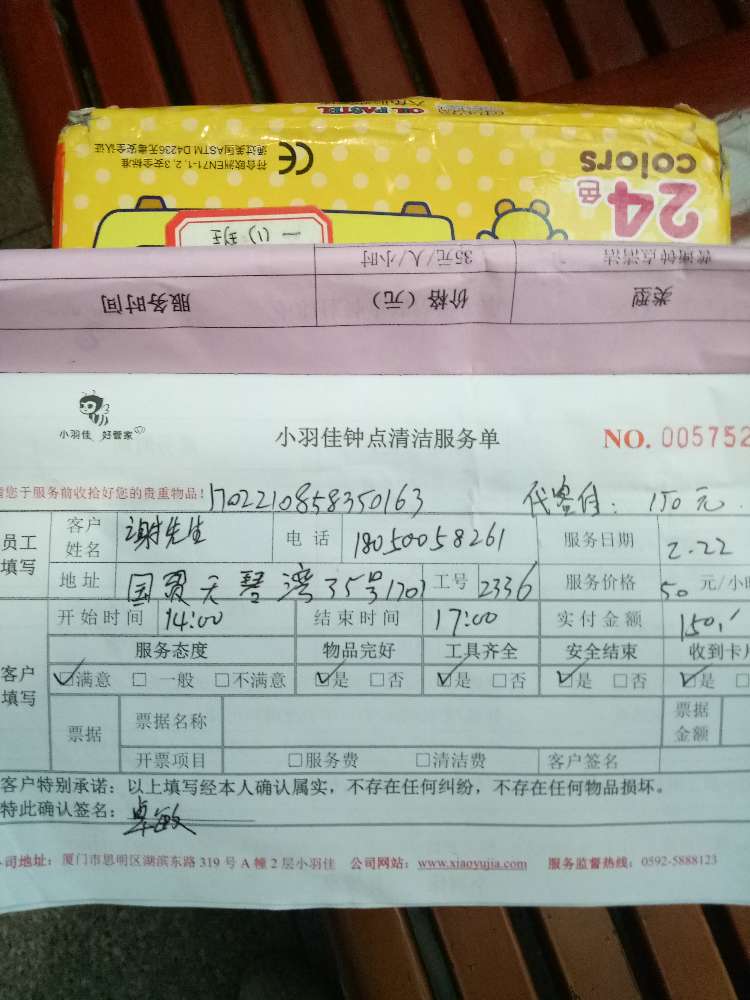 OIL PASTEL
符合欧洲EN71-1, 2, 3安全标准
通过美国ASTM D4236无毒安全认证
CE
24色
colors
一（1）班
类型 价格（元） 服务时间
钟点清洁 35元/人/小时
小羽佳 好管家
小羽佳钟点清洁服务单
NO. 005752
您于服务前收拾好您的贵重物品！ 1702210858350163 代客付：150元
员工填写
客户姓名 谢先生 电话 18050058261 服务日期 2.22
地址 国贸天琴湾35号1701 工号 2336 服务价格 50 元/小时
开始时间 14:00 结束时间 17:00 实付金额 150
客户填写
服务态度 物品完好 工具齐全 安全结束 收到卡
☑满意 □一般 □不满意 ☑是 □否 ☑是 □否 ☑是 □否 ☑是 □
票据 票据名称 票据金额
开票项目 □服务费 □清洁费 客户签名
客户特别承诺：以上填写经本人确认属实，不存在任何纠纷，不存在任何物品损坏。
特此确认签名：卓敏
司地址：厦门市思明区湖滨东路 319 号 A 幢 2 层小羽佳 公司网站：www.xiaoyujia.com 服务监督热线：0592-5888123